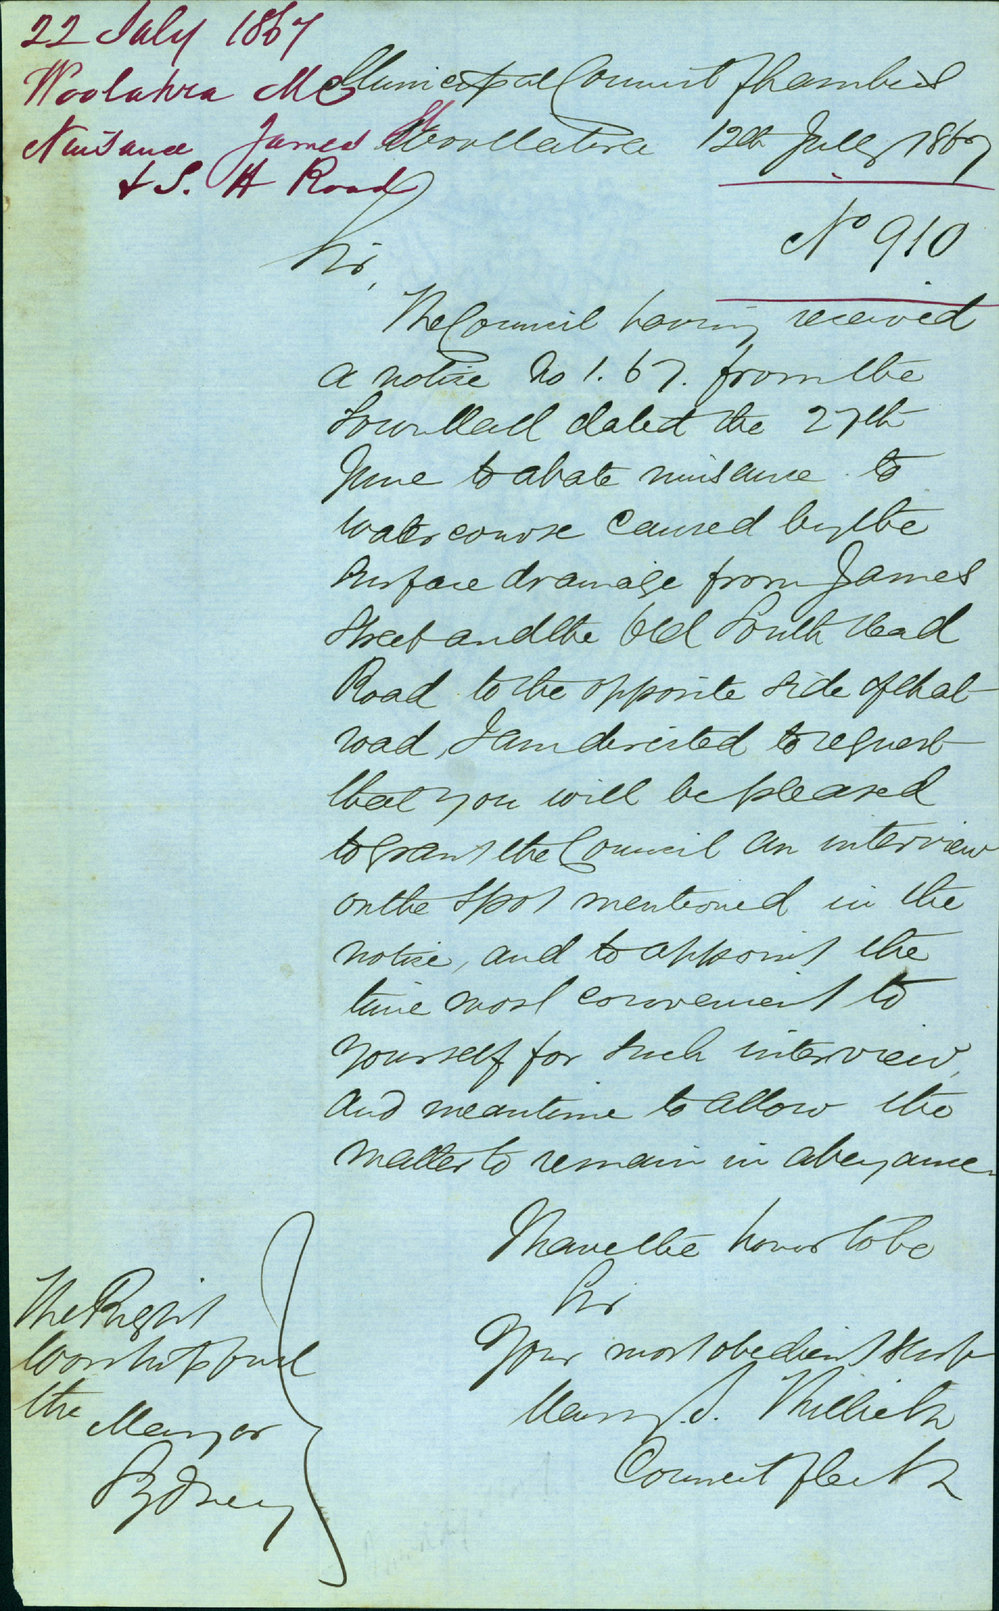 22 July 1867
Woolahra MC
Nuisance James St
& S. H Road
Municipal Council Chambers
Woollahra 12th July 1867
No 910
Sir,
The Council having received
a notice No 1. 67. from the
Town Hall dated the 27th
June to abate nuisance to
water course caused by the
surface drainage from James
Street and the Old South Head
Road to the opposite side of that
road, I am directed to request
that you will be pleased
to grant the Council an interview
on the spot mentioned in the
notice, and to appoint the
time most convenient to
yourself for such interview,
and meantime to allow the
matter to remain in abeyance
I have the honor to be
Sir
Your most obedient Servt
Council Clerk
The Right
Worshipful
the Mayor
Sydney